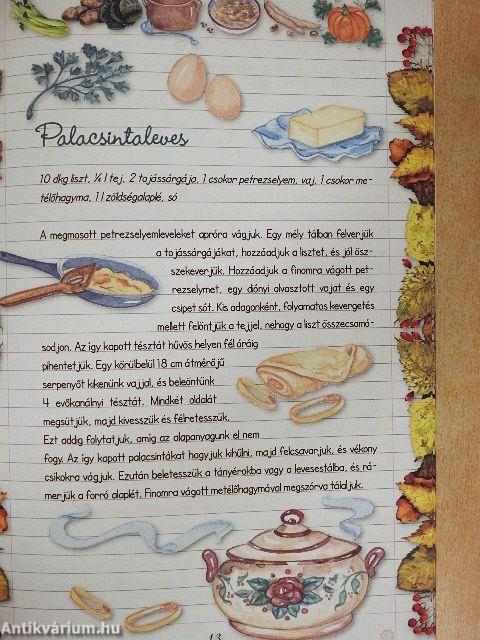 Palacsintaleves
10 dkg liszt, ¼ l tej, 2 tojássárgája, 1 csokor petrezselyem, vaj, 1 csokor me-
télőhagyma, 1 l zöldségalaplé, só
A megmosott petrezselyemleveleket apróra vágjuk. Egy mély tálban felverjük
a tojássárgájákat, hozzáadjuk a lisztet, és jól ösz-
szekeverjük. Hozzáadjuk a finomra vágott pet-
rezselymet, egy diónyi olvasztott vajat és egy
csipet sót. Kis adagonként, folyamatos kevergetés
mellett felöntjük a tejjel, nehogy a liszt összecsomó-
sodjon. Az így kapott tésztát hűvös helyen fél óráig
pihentetjük. Egy körülbelül 18 cm átmérőjű
serpenyőt kikenünk vajjal, és beleöntünk
4 evőkanálnyi tésztát. Mindkét oldalát
megsütjük, majd kivesszük és félretesszük.
Ezt addig folytatjuk, amíg az alapanyagunk el nem
fogy. Az így kapott palacsintákat hagyjuk kihűlni, majd felcsavarjuk, és vékony
csíkokra vágjuk. Ezután beletesszük a tányérokba vagy a levesestálba, és rá-
merjük a forró alaplét. Finomra vágott metélőhagymával megszórva tálaljuk.
13
Antikvárium.hu